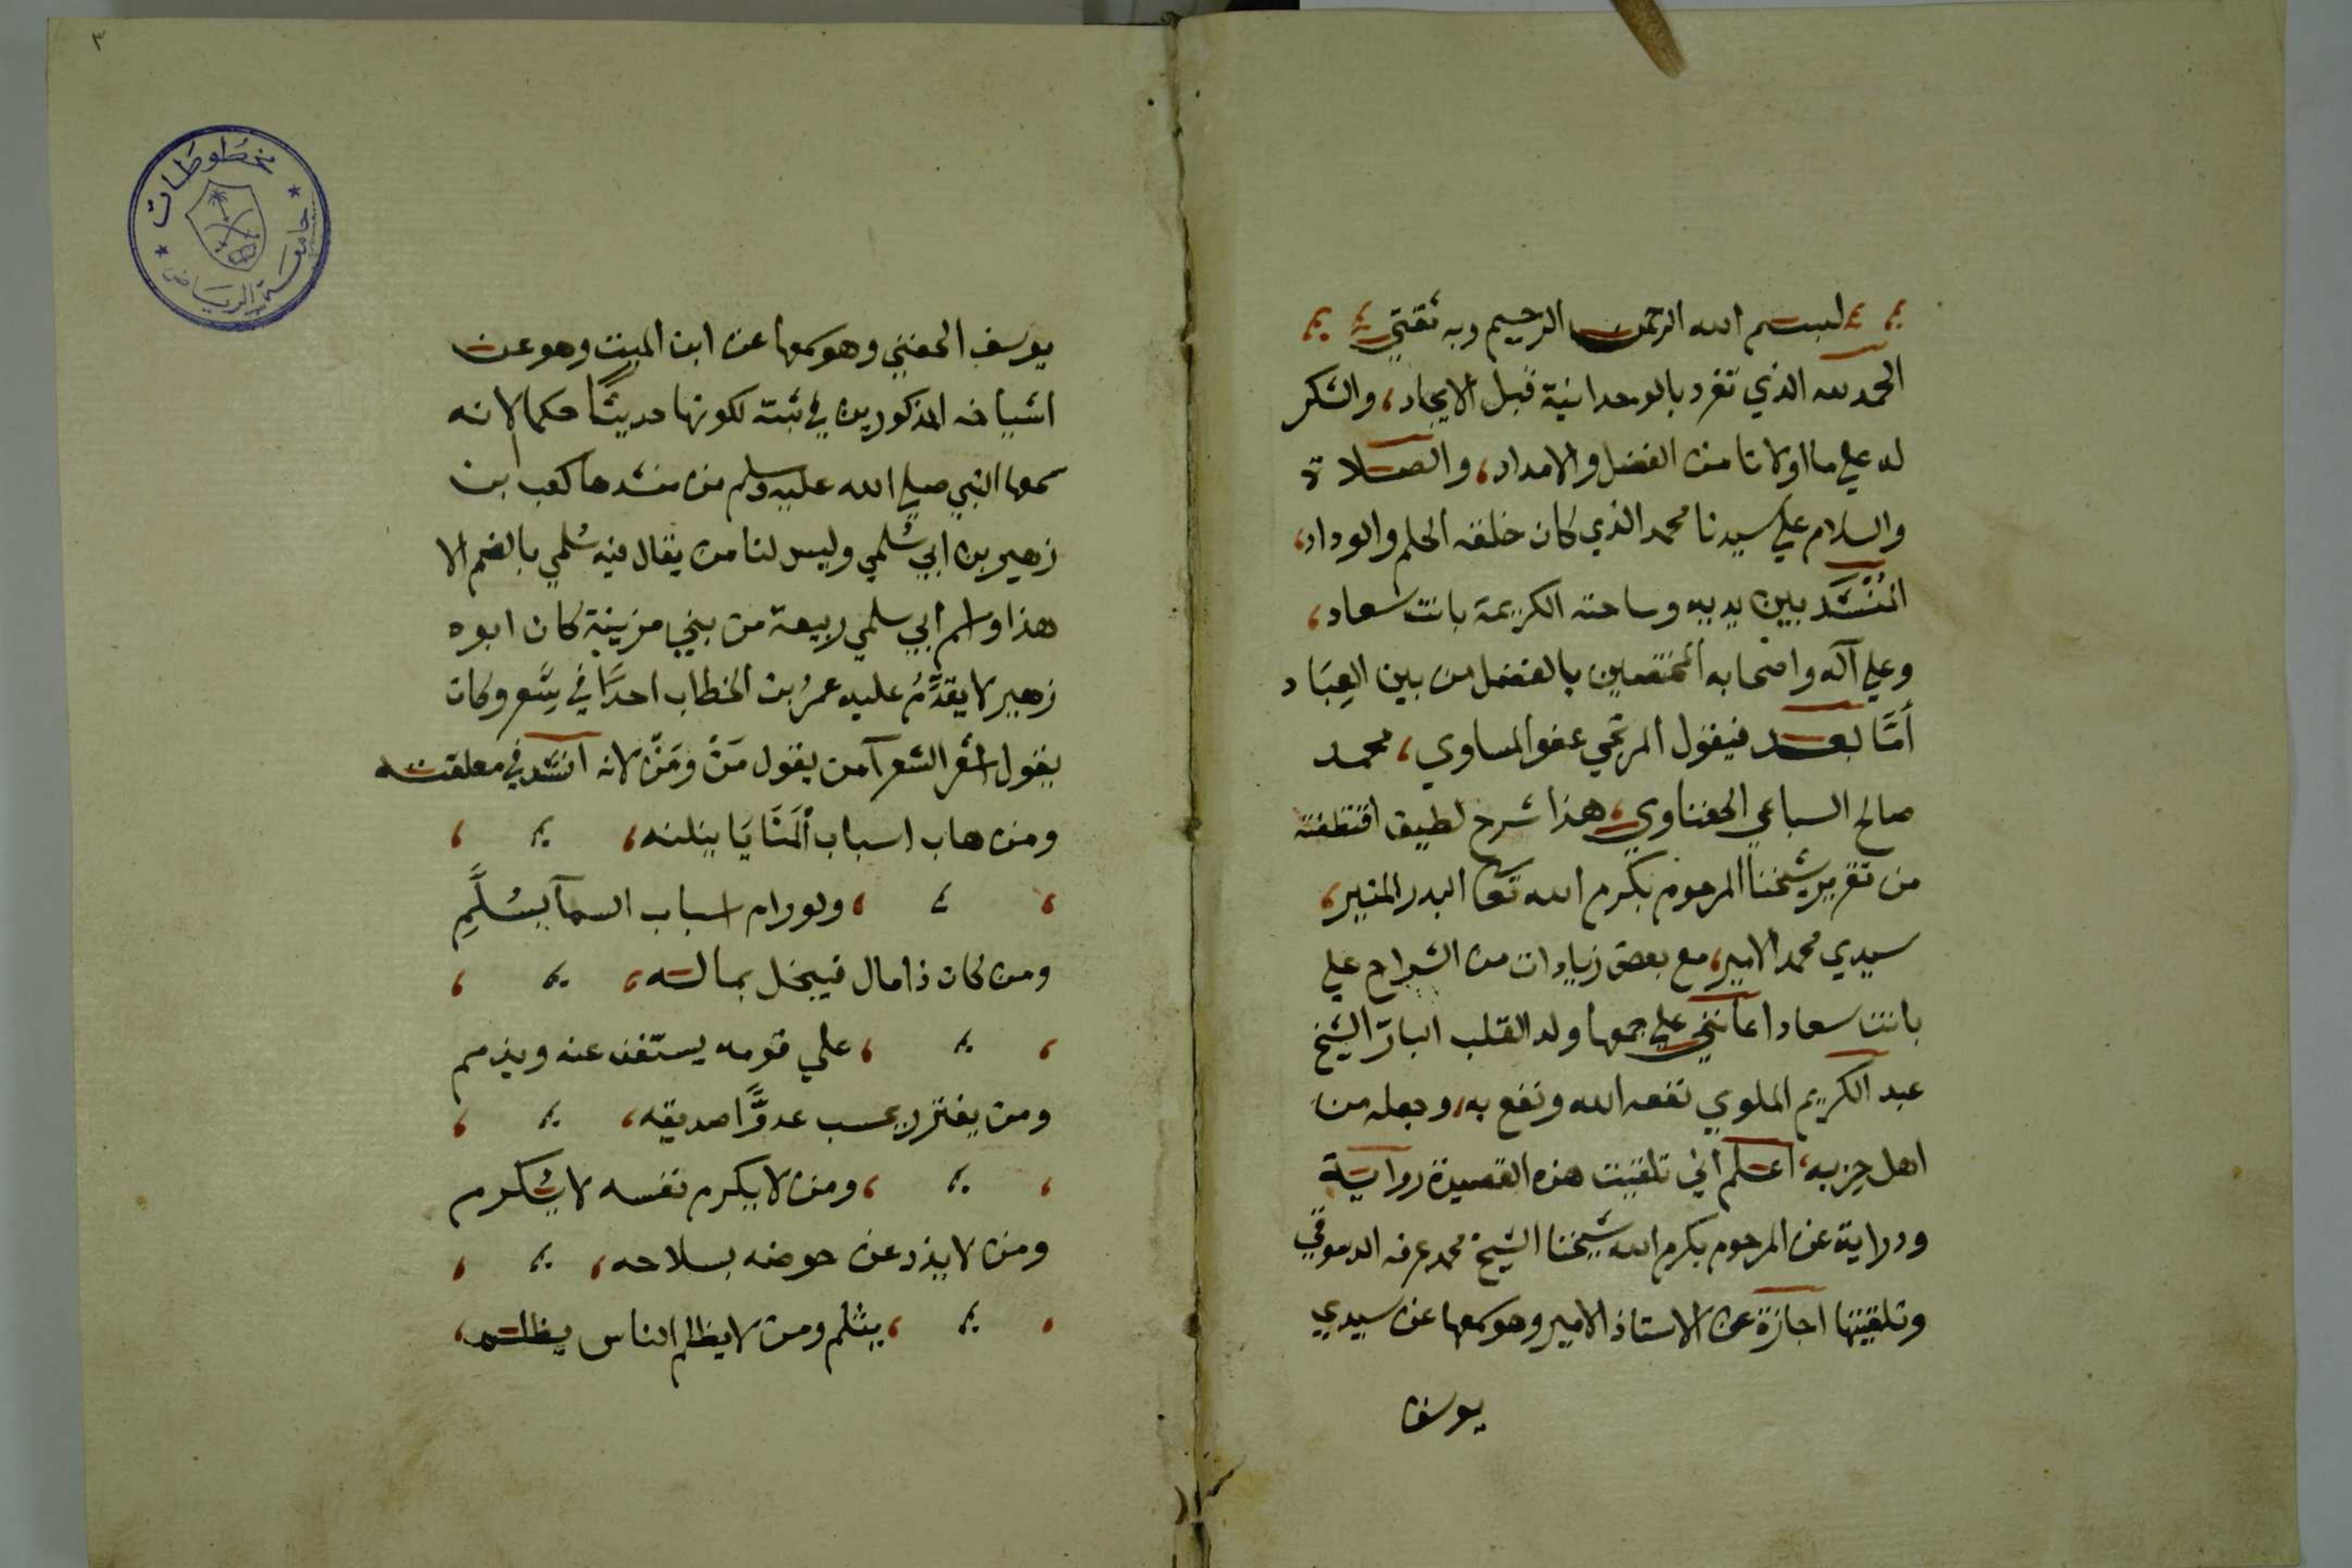 بسم الله الرحمن الرحيم وبه ثقتي
الحمد لله الذي تفرد بالوحدانية قبل الايجاد، والشكر
له علي ما اولانا من الفضل والامداد، والصلاة
والسلام علي سيدنا محمد الذي كان خلقه الحلم والوداد،
المُنْشَد بين يديه وساحته الكريمة بانت سعاد،
وعلي آله واصحابه المختصين بالفضل من بين العِبَاد
أمَّا بعد فيقول المرتجي عفو المساوي، محمد
صالح السباعي الحفناوي، هذا شرح لطيف اقتطفته
من تقرير شيخنا المرحوم بكرم الله تعا البدر المنير،
سيدي محمد الامير، مع بعض زيادات من الشراح علي
بانت سعاد اعانني علي جمعها ولد القلب البارّ الشيخ
عبد الكريم الملوي نفعه الله ونفع به، وجعله من
اهل حزبه، اعلم اني تلقيت هذه القصيدة رواية
ودراية عن المرحوم بكرم الله شيخنا الشيخ محمد عرفه الدسوقي
وتلقيتها اجازة عن الاستاذ الامير وهو سمعها عن سيدي
يوسف
٣
مخطوطات
جامعة الرياض
يوسف الحفني وهو سمعها عن ابن الميت وهو عن
اشياخه المذكورين في ثبته لكونها حديثًا حكما لانه
سمعها النبي صلي الله عليه وسلم من منشدها كعب بن
زهير بن ابي سُلمي وليس لنا من يقال فيه سُلمي بالضم الا
هذا واسم ابي سلمي ربيعة من بني مزينة كان ابوه
زهير لا يقدِّمُ عليه عمرُ بن الخطاب احدًا في شِعر وكان
يقول اشعر الشعرآ من يقول مَنْ ومَنْ لانه انشد في معلقته
ومن هاب اسباب المَنَايَا ينلنه،
ولو رام اسباب السمآ بسُلَّمِ
ومن كان ذا مال فيبخل بماله،
علي قومه يستغن عنه ويذمم
ومن يغترر يحسب عدوًّا صديقه،
ومن لا يكرم نفسه لا يُكرم
ومن لا يذد عن حوضه بسلاحه،
يثلم ومن لا يظلم الناس يظلم،